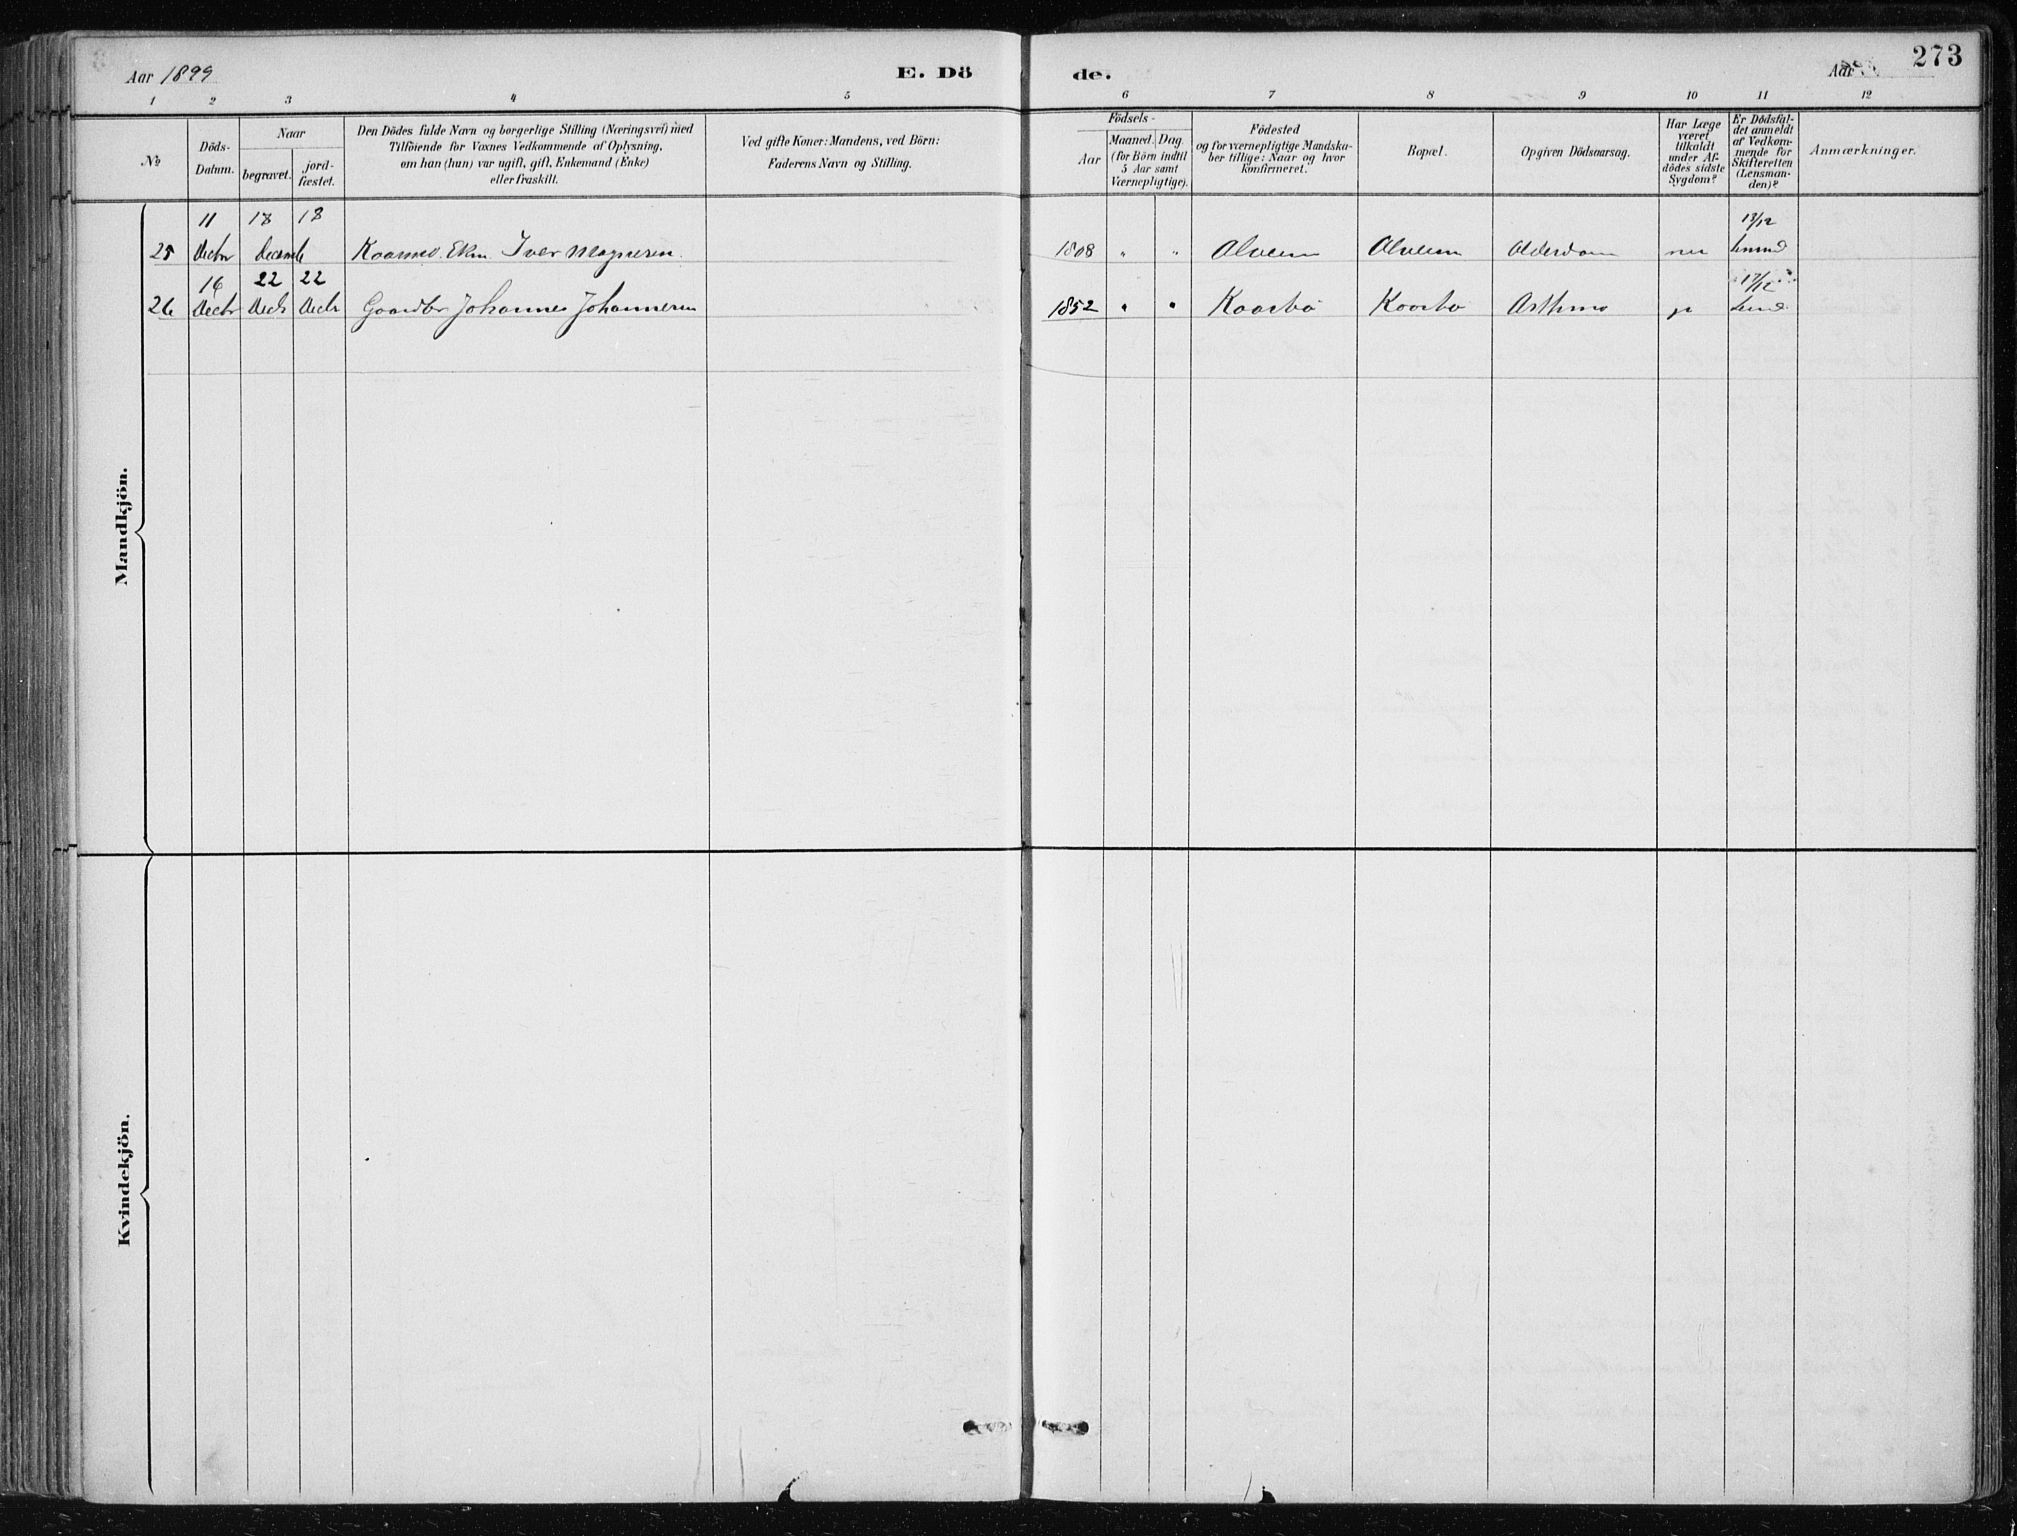 273
Aar 1899
E. Dö
de.
Aar
1 2 3 4 5 6 7 8 9 10 11 12
No
Döds-
Datum.
Naar
begravet.
jord-
fæstet.
Den Dödes fulde Navn og borgerlige Stilling (Næringsvei) med
Tilföiende for Voxnes Vedkommende af Oplysning,
om han (hun) var ugift, gift, Enkemand (Enke)
eller fraskilt.
Ved gifte Koner: Mandens, ved Börn:
Faderens Navn og Stilling.
Födsels-
Aar
Maaned. Dag.
(for Börn indtil
5 Aar samt
Værnepligtige).
Födested
og for værnepligtige Mandska-
ber tillige: Naar og hvor
konfirmeret.
Bopæl.
Opgiven Dödsaarsag.
Har Læge
været
tilkaldt
under Af-
dödes sidste
Sygdom?
Er Dödsfal-
det anmeldt
af Vedkom-
mende for
Skifteretten
(Lensman-
den)?
Anmærkninger.
11 18 18 13/12
25 Decbr Decemb Kaarmd. Ekm. Iver Magnesen. 1808 " " Alveim Alveim Alderdom nei
16 22 22 17/12
26 Decbr Decb Decb Gaardbr Johannes Johannesen 1852 " " Kaarbö Kaarbö Asthma ja
Mandkjön.
Kvindekjön.